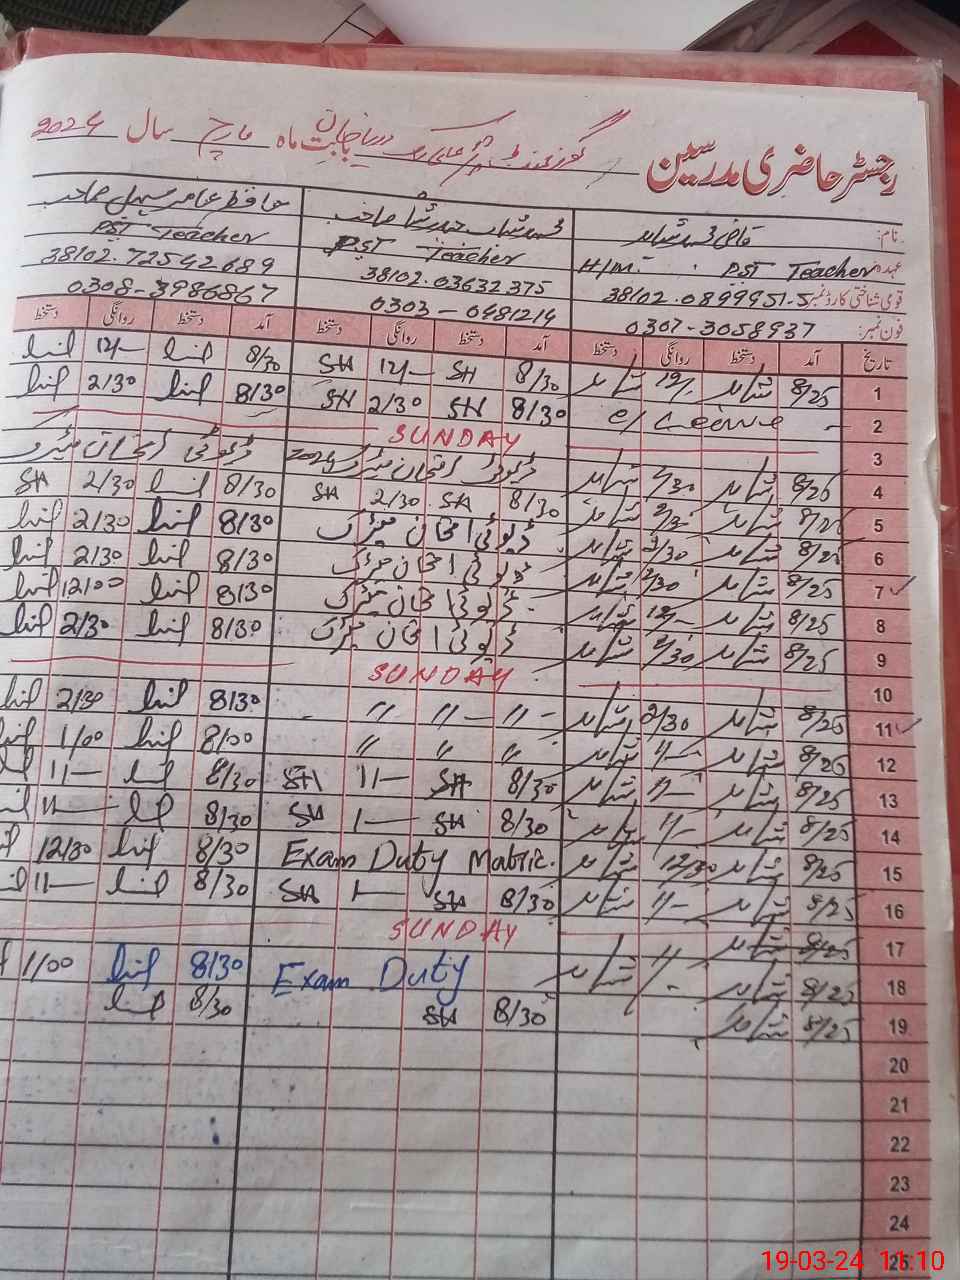 رجسٹر حاضری مدرسین بابت ماہ مارچ سال 2024
نام: قاضی محمد شاہد
حافظ عامر سہیل صاحب
عہدہ: PST Teacher H/M
PST Teacher
PST Teacher
قومی شناختی کارڈ نمبر: 38102.0899951-5
38102.03632375
38102.72542689
فون نمبر: 0307-3058937
0303-0481214
0308-3986867
تاریخ آمد دستخط روانگی دستخط آمد دستخط روانگی دستخط آمد دستخط روانگی دستخط
1 8/25 شاہد 12/- شاہد 8/30 SH 12/- SH 8/30 12/-
2 c/Leave 8/30 SH 2/30 SH 8/30 2/30
3 SUNDAY
4 8/25 شاہد 2/30 شاہد ڈیوٹی امتحان میٹرک 2024 ڈیوٹی امتحان میٹرک
5 8/25 شاہد 2/30 شاہد 8/30 SH 2/30 SH 8/30 2/30 SH
6 8/25 شاہد 2/30 شاہد ڈیوٹی امتحان میٹرک 8/30 2/30
7 8/25 شاہد 2/30 شاہد ڈیوٹی امتحان میٹرک 8/30 2/30
8 8/25 شاہد 12/- شاہد ڈیوٹی امتحان میٹرک 8/30 12/00
9 8/25 شاہد 2/30 شاہد ڈیوٹی امتحان میٹرک 8/30 2/30
10 SUNDAY
11 8/25 شاہد 2/30 شاہد - 〃 - 〃 〃 - 8/30 2/30
12 8/25 شاہد 1/- شاہد 〃 〃 〃 8/00 1/00
13 8/25 شاہد 1/- شاہد 8/30 SH 1/- SH 8/30 1/-
14 8/25 شاہد 1/- شاہد 8/30 SH 1/- SH 8/30 1/-
15 8/25 شاہد 12/30 شاہد Exam Duty Matric. 8/30 12/30
16 8/25 شاہد 1/- شاہد 8/30 SH 1/- SH 8/30 1/-
17 8/25 شاہد SUNDAY
18 8/25 شاہد 1/- شاہد Exam Duty 8/30 1/00
19 8/25 شاہد 8/30 SH 8/30
20
21
22
23
24
25
19-03-24 11:10